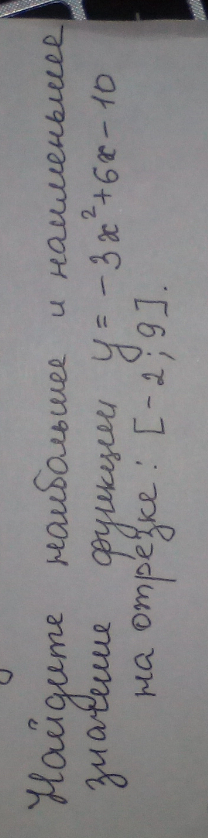 Найдите наибольшее и наименьшее
значение функции y = -3x²+6x-10
на отрезке: [-2; 9].